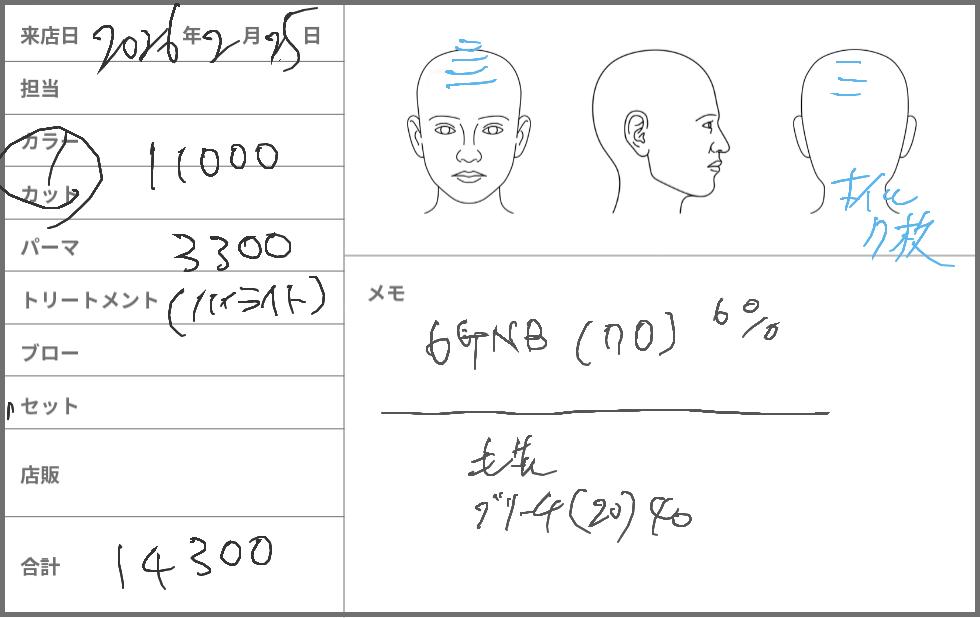 来店日 2026年2月25日
担当
カラー
カット 11000
パーマ 3300
トリートメント (ハイライト)
ブロー
セット
店販
合計 14300
ホイル
7枚
メモ
6GNB (70) 6%
毛先
ブリーチ(20) 40